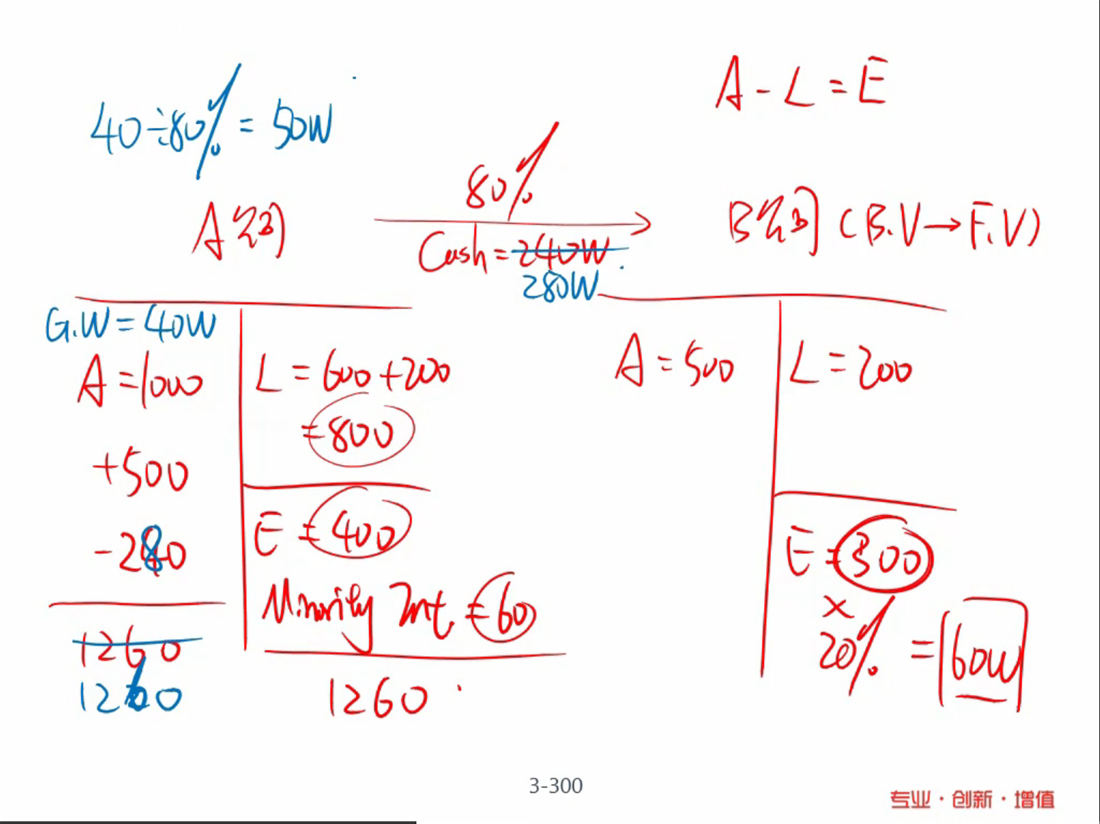 40÷80%=50W
A-L=E
80%
A公司
Cash=240W.
280W
B公司(B.V→F.V)
G.W=40W
A=1000
+500
-280
1260
1220
L=600+200
=800
E=400
Minority Int.=60
1260
A=500
L=200
E=300
×
20%
=60W
3-300
专业·创新·增值